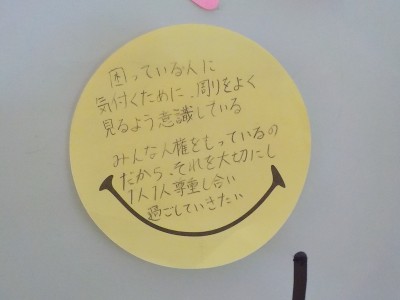 困っている人に
気付くために、周りをよく
見るよう意識している
みんな人権をもっているの
だから、それを大切にし
1人1人尊重し合い
過ごしていきたい